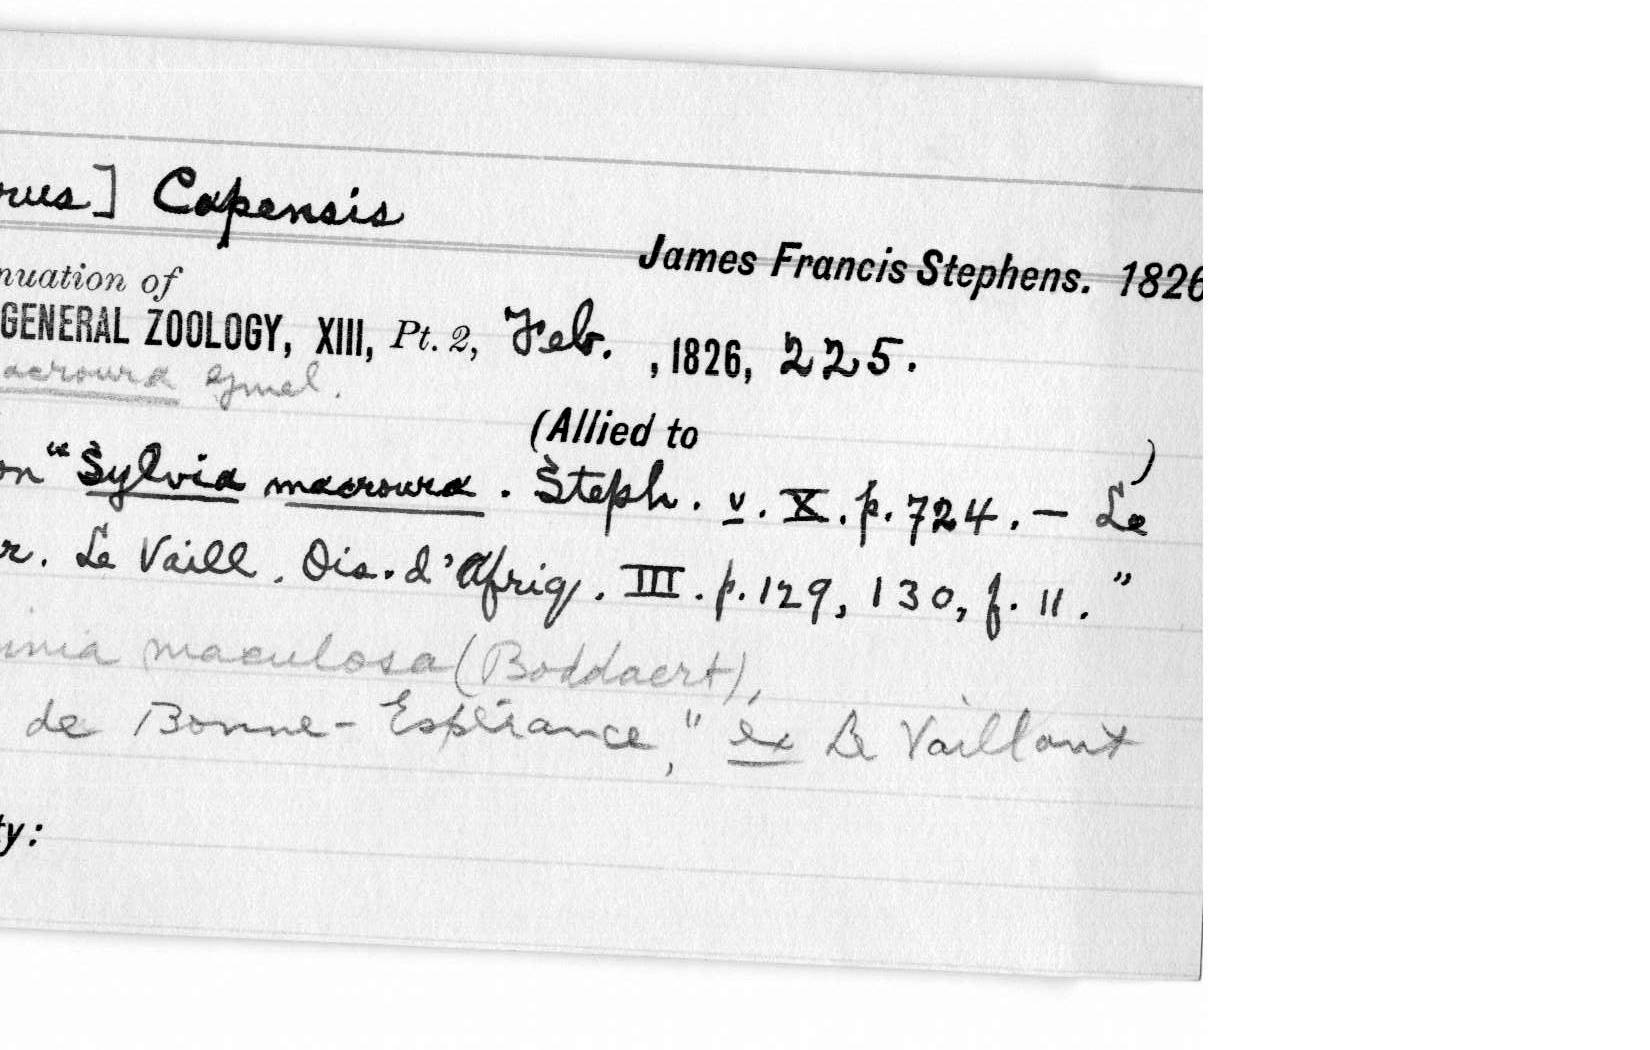 rus] Capensis
James Francis Stephens. 1826
nuation of
GENERAL ZOOLOGY, XIII, Pt. 2, Feb. , 1826, 225.
acroura Gmel.
(Allied to )
on "Sylvia macroura. Steph. v. X. p. 724. — Le
r. Le Vaill. Ois. d'Afriq. III. p. 129, 130, f. 11."
inia maculosa (Boddaert),
de Bonne-Espérance," ex Le Vaillant
ty: